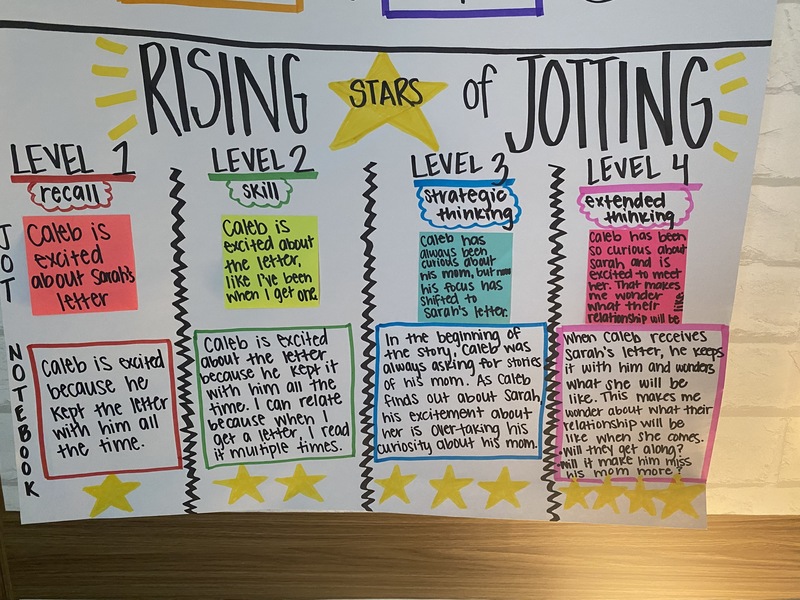 RISING STARS of JOTTING
LEVEL 1
recall
LEVEL 2
skill
LEVEL 3
strategic
thinking
LEVEL 4
extended
thinking
JOT
Caleb is
excited
about Sarah's
letter
Caleb is
excited about
the letter,
like I've been
when I get one.
Caleb has
always been
curious about
his mom, but
his focus has
shifted to
Sarah's letter.
Caleb has been
so curious about
Sarah and is
excited to meet
her. That makes
me wonder
what their
relationship will be
like
NOTEBOOK
Caleb is excited
because he
kept the letter
with him all
the time.
Caleb is excited
about the letter
because he kept it
with him all the
time. I can relate
because when I
get a letter, I read
it multiple times.
In the beginning of
the story, Caleb was
always asking for stories
of his mom. As Caleb
finds out about Sarah,
his excitement about
her is overtaking his
curiosity about his mom.
When Caleb receives
Sarah's letter, he keeps
it with him and wonders
what she will be
like. This makes me
wonder about what their
relationship will be
like when she comes.
Will they get along?
Will it make him miss
his mom more?